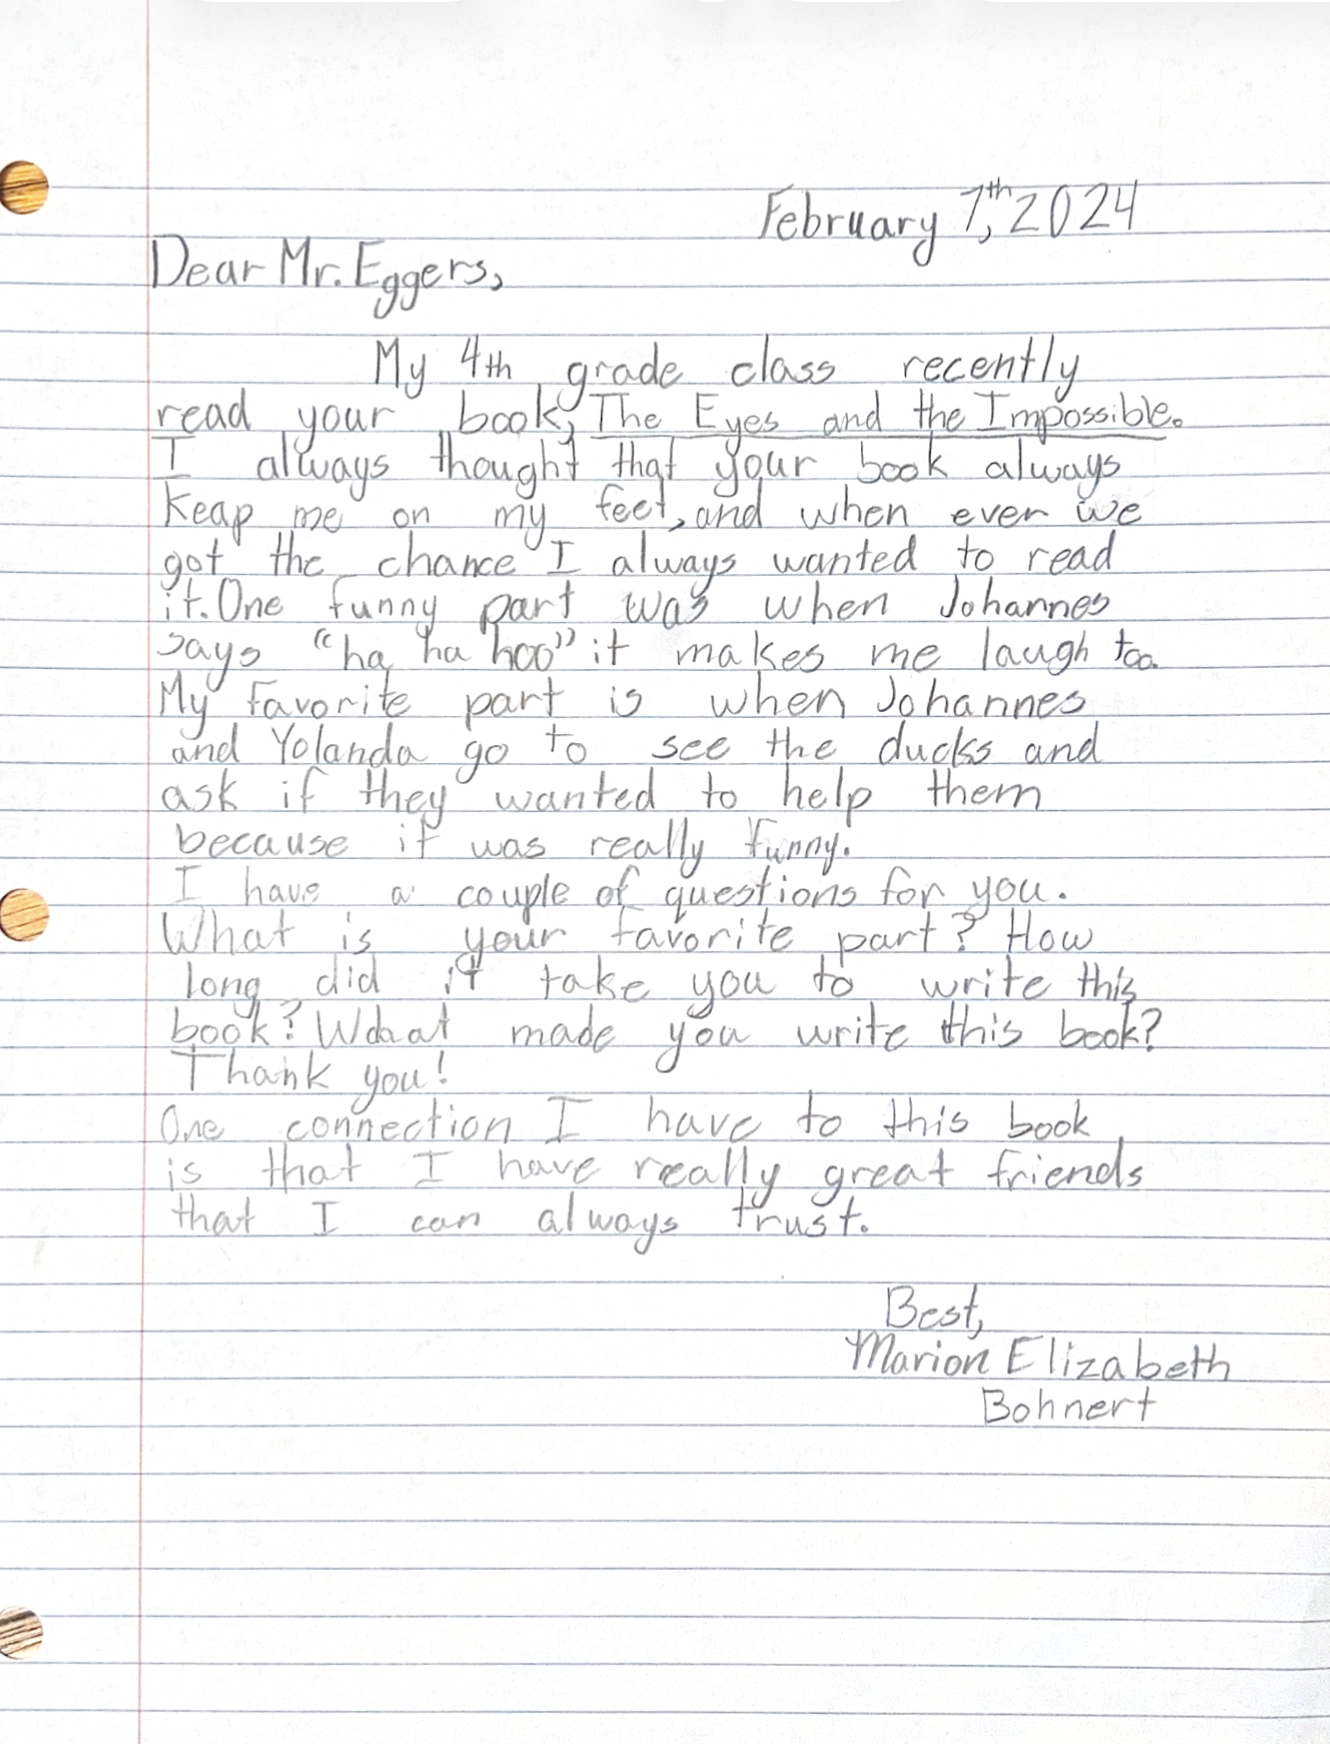 February 7th, 2024
Dear Mr. Eggers,
My 4th grade class recently
read your book, The Eyes and the Impossible.
I always thought that your book always
keap me on my feet, and when ever we
got the chance I always wanted to read
it. One funny part was when Johannes
says "ha ha hoo" it makes me laugh too.
My favorite part is when Johannes
and Yolanda go to see the ducks and
ask if they wanted to help them
because it was really funny.
I have a couple of questions for you.
What is your favorite part? How
long did it take you to write this
book? What made you write this book?
Thank you!
One connection I have to this book
is that I have really great friends
that I can always trust.
Best,
Marion Elizabeth
Bohnert